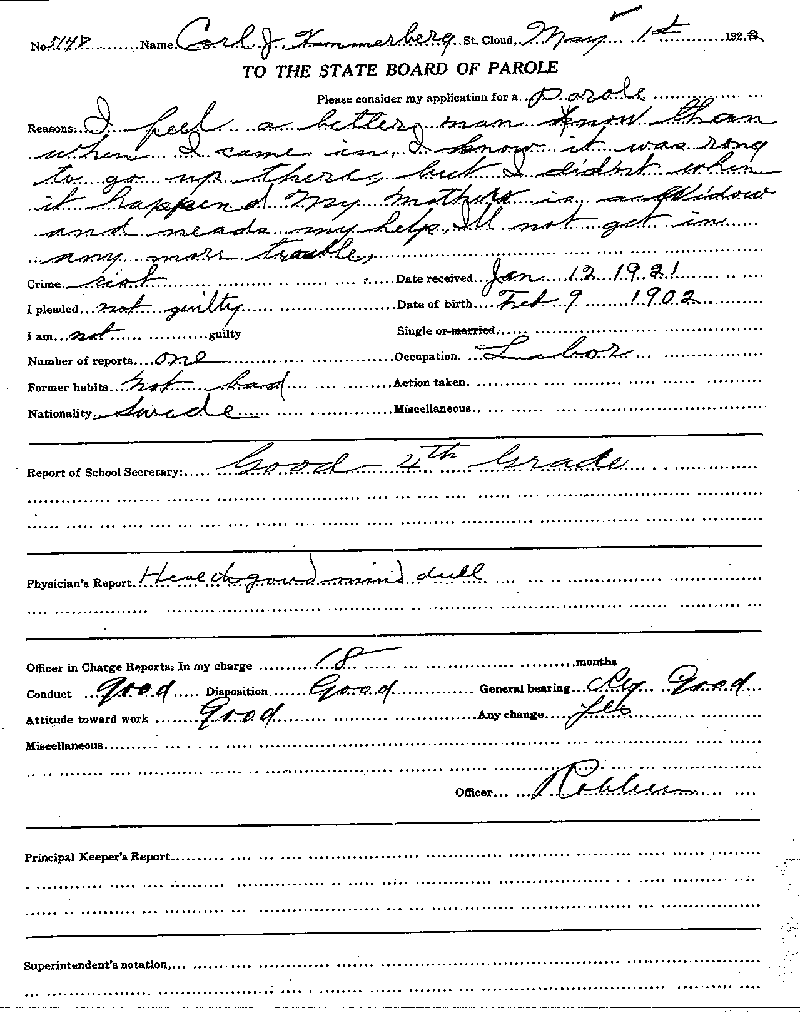 No 5148 Name Carl J. Hammerberg St. Cloud, May 1st 192
TO THE STATE BOARD OF PAROLE
Please consider my application for a parole
Reasons: I feel a better man know than
when I came in, I know it was rong
to go up there, but I didn't when
it happend My mothers is a Widow
and neads my help Ill not get in
any more trouble,
Crime riot Date received Jan 12 1921
I pleaded not guilty Date of birth Feb 9 1902
I am not guilty Single or married
Number of reports one Occupation Labor
Former habits not bad Action taken
Nationality Swide Miscellaneous
Report of School Secretary: Good - 4th Grade
Physician's Report Health good mind dull
Officer in Charge Reports: In my charge 18 months
Conduct good Disposition Good General bearing Good
Attitude toward work Good Any change Yes
Miscellaneous
Officer
Principal Keeper's Report
Superintendent's notation,